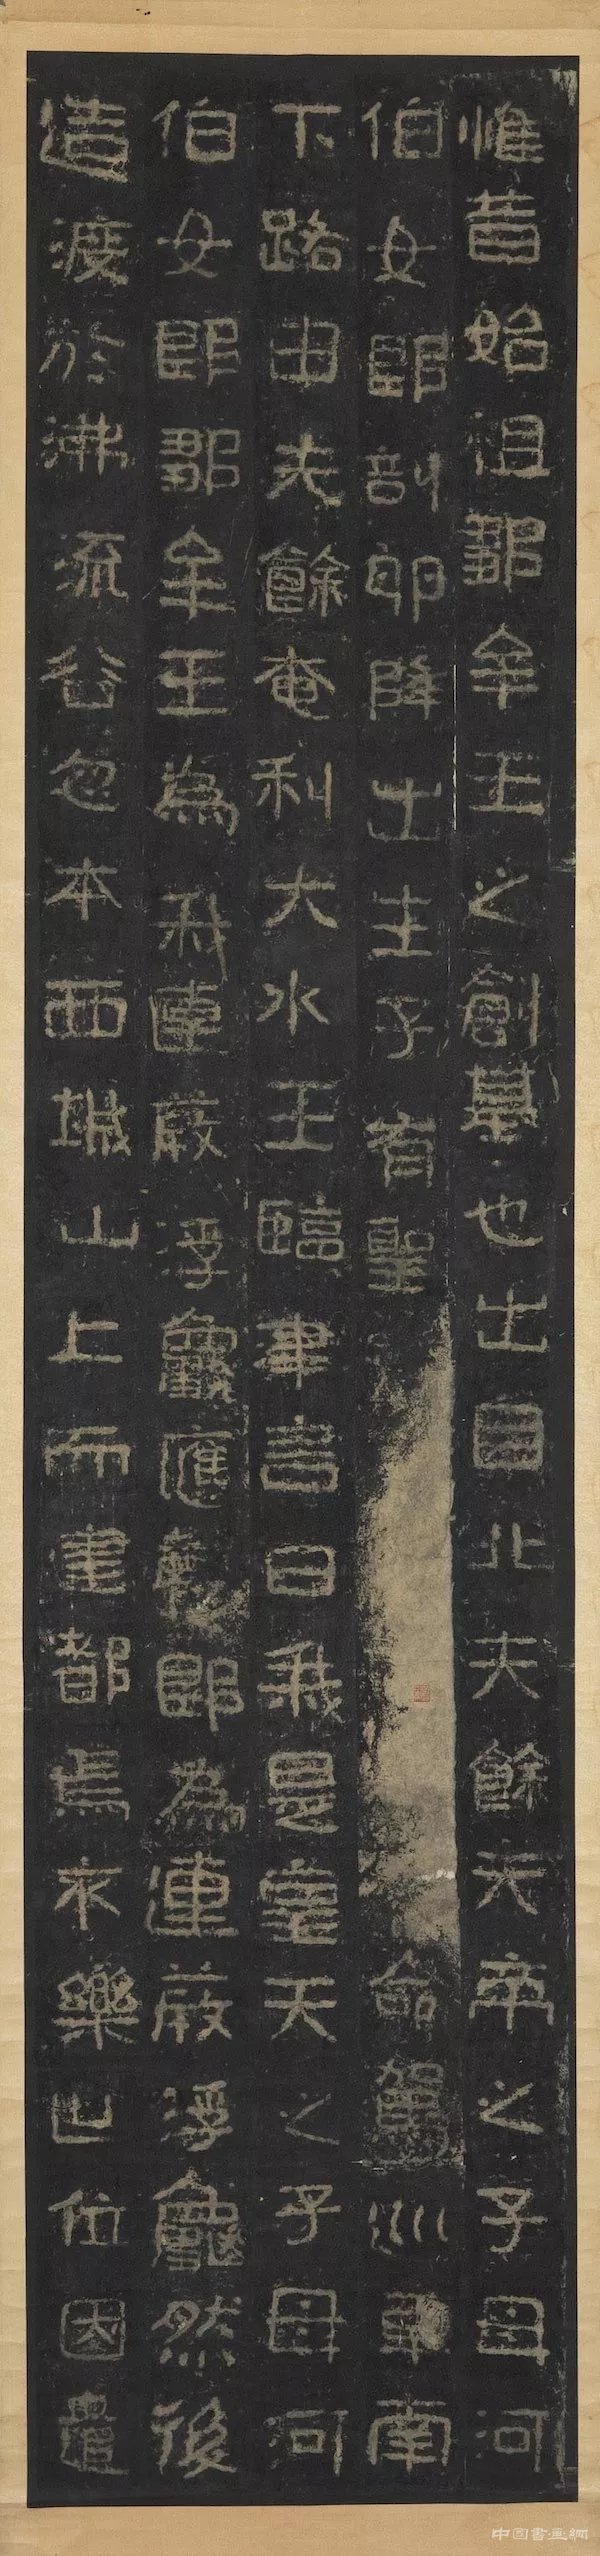 惟昔始祖鄒牟王之創基也出自北夫餘天帝之子母河
伯女郎剖卵降出生子有聖命駕巡車南
下路由夫餘奄利大水王臨津言曰我是皇天之子母河
伯女郎鄒牟王為我連葭浮龜應聲即為連葭浮龜然後
造渡於沸流谷忽本西城山上而建都焉不樂世位因遣
中國書畫網